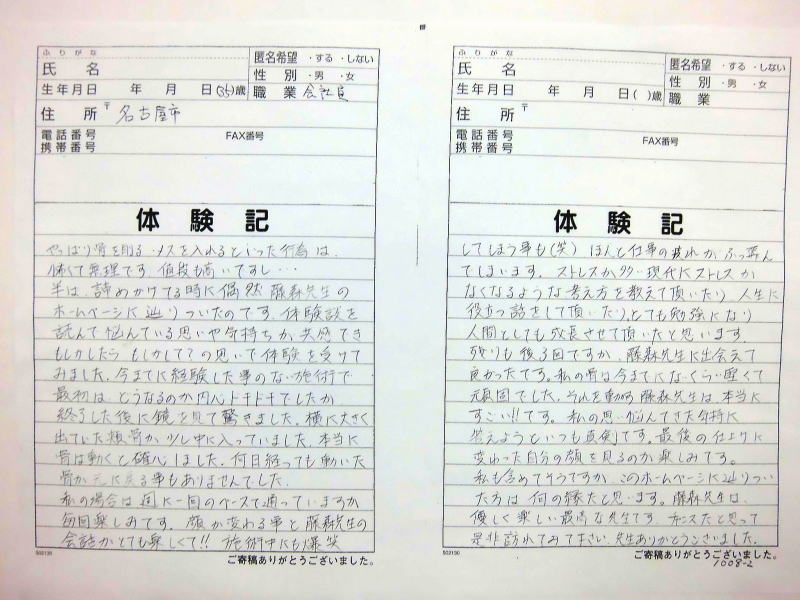 ふりがな
氏 名
匿名希望 ・する ・しない
性 別 ・男 ・女
生年月日 年 月 日 (35)歳 職 業 会社員
住 所 〒 名古屋市
電話番号 FAX番号
携帯番号
体験記
やっぱり骨を削る・メスを入れるといった行為は、
怖くて無理です 値段も高いですし…
半は、諦めかけてる時に偶然 藤森先生の
ホームページに辿りついたのです。体験談を
読んで悩んでいる思いや気持ちが共感でき
もしかしたら もしかして?の思いで体験を受けて
みました。今までに経験した事のない施術で
最初は、どうなるのか内心ドキドキでしたが
終了した後に鏡を見て驚きました。横に大きく
出ていた頬骨が少し中に入っていました。本当に
骨は動くと確心しました。何日経っても動いた
骨が元に戻る事もありませんでした。
私の場合は週に一回のペースで通っていますが
毎回楽しみです。顔が変わる事と藤森先生の
会話がとても楽しくて!! 施術中にも爆笑
502130
ご寄稿ありがとうございました。
ふりがな
氏 名
匿名希望 ・する ・しない
性 別 ・男 ・女
生年月日 年 月 日 ( )歳 職 業
住 所 〒
電話番号 FAX番号
携帯番号
体験記
してしまう事も(笑) ほんと仕事の疲れがふっ飛ん
でしまいます。ストレスが多い現代にストレスが
なくなるような考え方を教えて頂いたり、人生に
役立つ話をして頂いたりとても勉強になり
人間としても成長させて頂いたと思います。
残りも後3回ですが、藤森先生に出会えて
良かったです。私の骨は今までにないくらい堅くて
頑固でした。それを動かす藤森先生は、本当に
すごい!!です。私の思い悩んできた気持に
答えようといつも真剣です。最後の仕上りに
変わった自分の顔を見るのが楽しみです。
私も含めてそうですが、このホームページに辿りつい
た方は 何の縁だと思います。藤森先生は、
優しく楽しい最高な先生です。チャンスだと思って
是非訪れてみて下さい。先生ありがとうございました。
502130
ご寄稿ありがとうございました。
1008-2